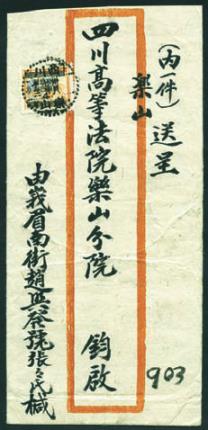 (内一件)
樂山 送呈
四川高等法院樂山分院 鈞啟
由峩眉南街趙興發號張
903